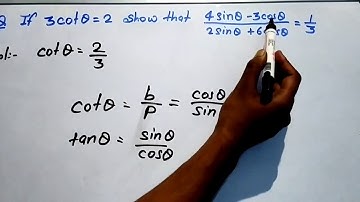 Q If 3cotθ = 2 show that (4sinθ - 3cosθ)/(2sinθ + 6cosθ) = 1/3
Sol:- cotθ = 2/3
cotθ = b/P = cosθ/sin
tanθ = sinθ/cosθ